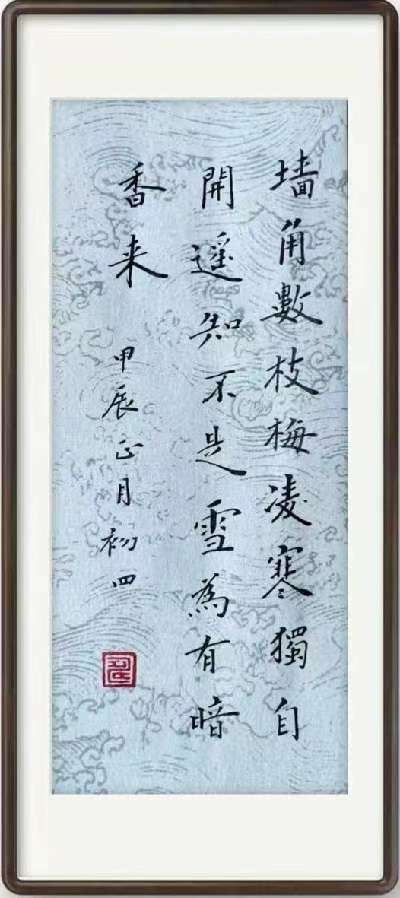 墙角數枝梅凌寒獨自
開遥知不是雪為有暗
香来
甲辰正月初四